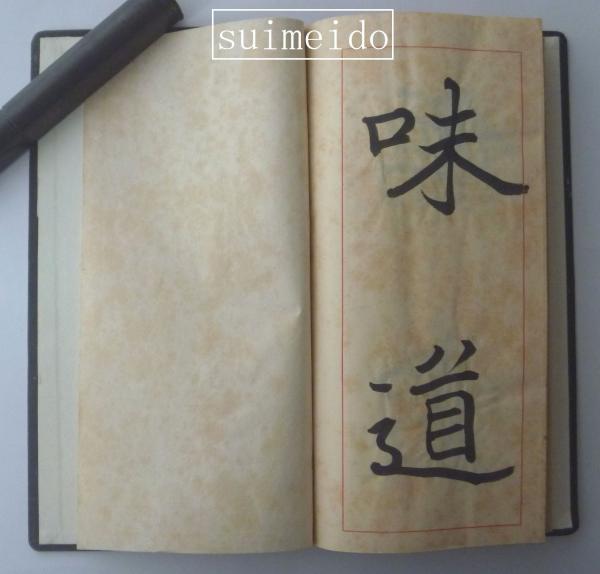 suimeido
味道